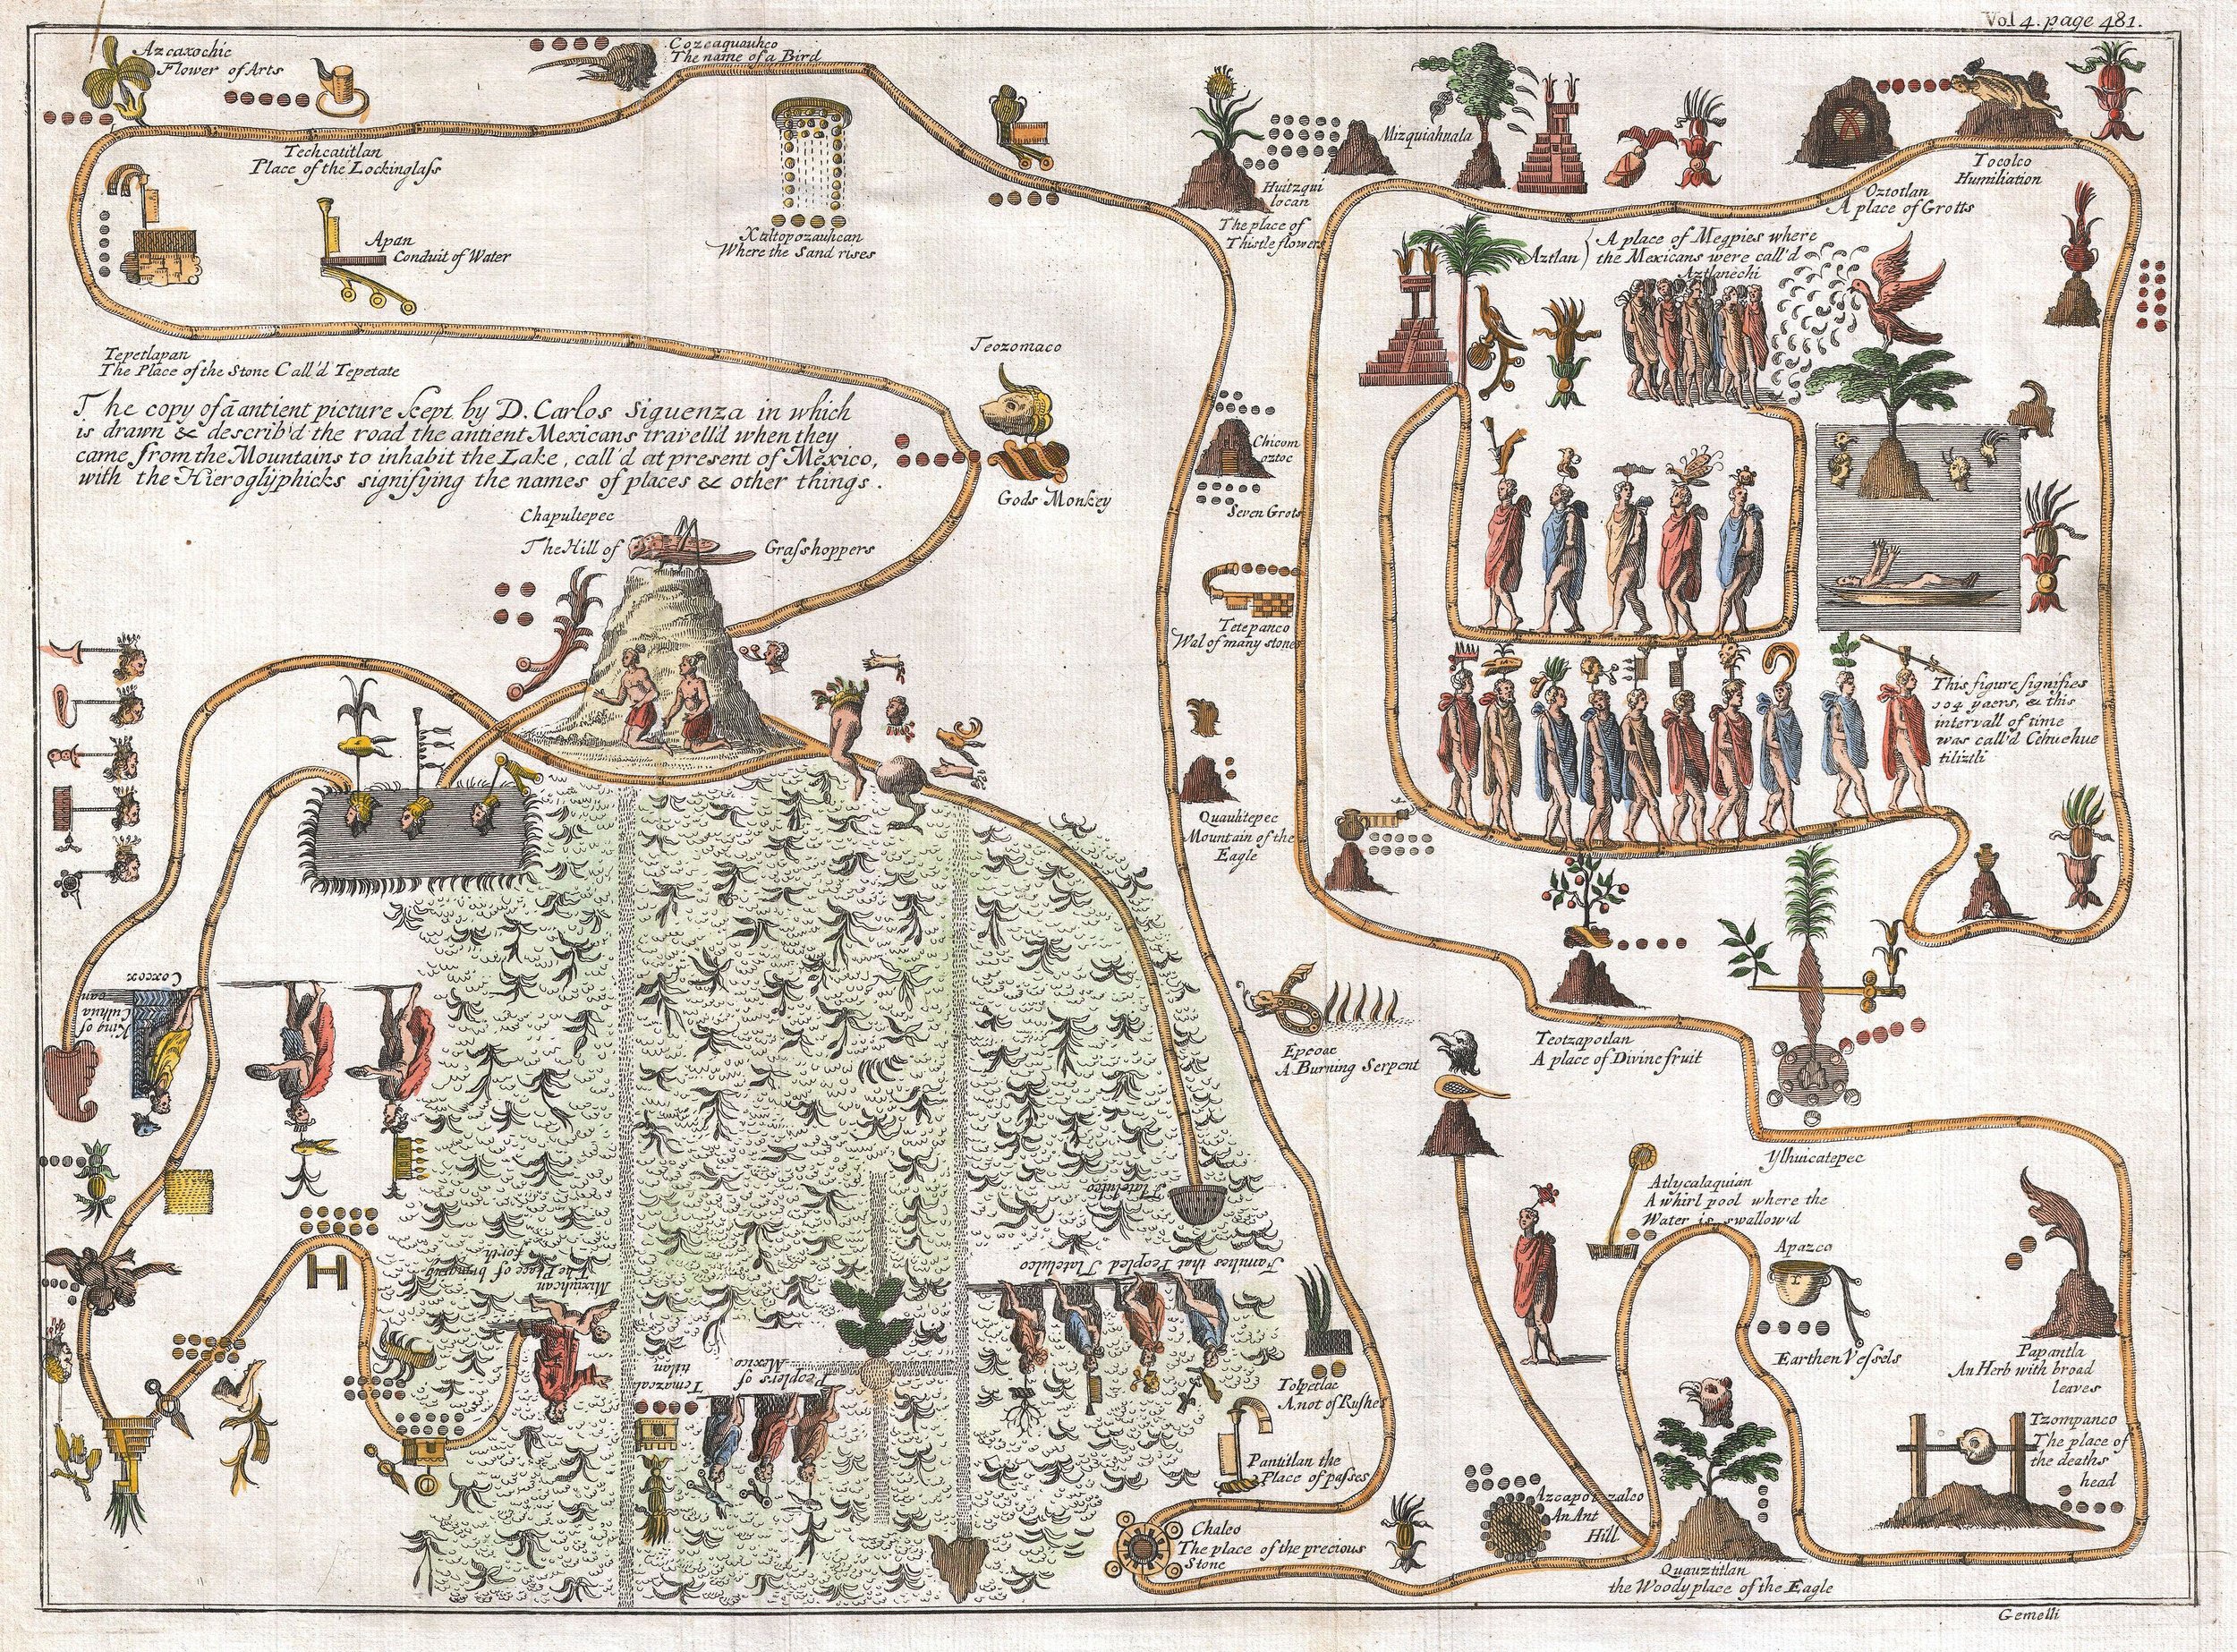 Vol 4. page 481.
Azcaxochic
Flower of Arts
Cozcaquauhco
The name of a Bird
Techcatitlan
Place of the Lockinglass
Apan
Conduit of Water
Xaltopozauhcan
Where the Sand rises
Huitzqui
locan
The place of
Thistle flowers
Mizquiahnala
Oztotlan
A place of Grotts
Tocolco
Humiliation
Aztlan
A place of Megpies where
the Mexicans were call'd
Aztlanechi
Tepetlapan
The Place of the Stone Call'd Tepetate
The copy of ā antient picture kept by D. Carlos Siguenza in which
is drawn & describ'd the road the antient Mexicans travell'd when they
came from the Mountains to inhabit the Lake, call'd at present of Mexico,
with the Hieroglyphicks signifying the names of places & other things.
Teozomaco
Gods Monkey
Chicom
oztoc
Seven Grots
Chapultepec
The Hill of Grasshoppers
Tetepanco
Wal of many stones
This figure signifies
104 yaers, & this
intervall of time
was call'd Cehuehue
tiliztli
Quauhtepec
Mountain of the
Eagle
Coxcox
King of
Culhua
can
Epcoac
A Burning Serpent
Teotzapotlan
A place of Divine fruit
Ylhuicatepec
Atlycalaquian
A whirl pool where the
Water is swallow'd
Apazco
Earthen Vessels
Papantla
An Herb with broad
leaves
Tlatelulco
Families that Peopled Tlatelulco
Mixiuhcan
The Place of bringing
forth
Peoplers of
Mexico
Tenazcal
titlan
Tolpetlac
A not of Rushes
Pantitlan the
Place of passes
Tzompanco
The place of
the deaths
head
Chalco
The place of the precious
Stone
Azcapotzalco
An Ant
Hill
Quauztitlan
the Woody place of the Eagle
Gemelli